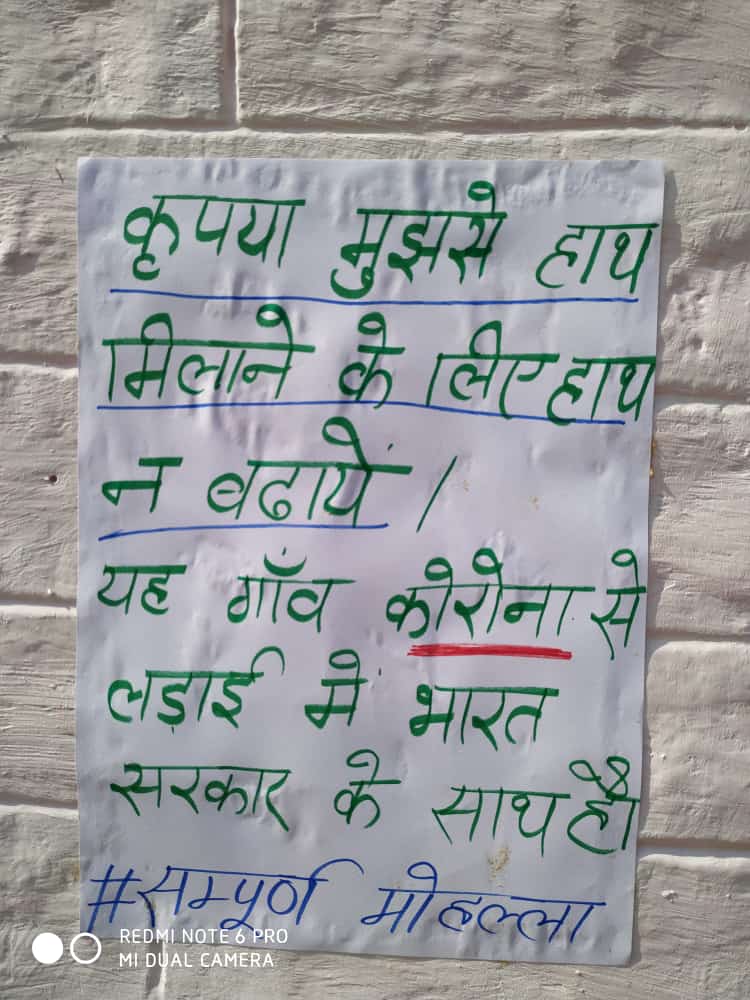 कृपया मुझसे हाथ
मिलाने के लिए हाथ
न बढायें ।
यह गाँव कोरोना से
लड़ाई में भारत
सरकार के साथ है।
#सम्पूर्ण मोहल्ला
REDMI NOTE 6 PRO
MI DUAL CAMERA